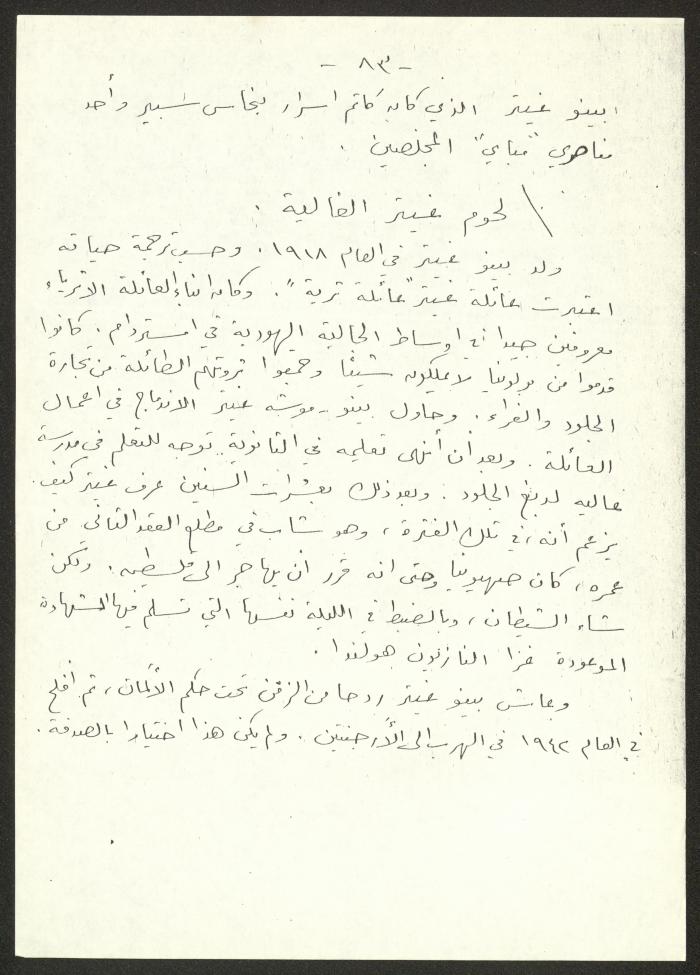 - ٨٣ -
بينو غيتر الذي كان كاتم اسرار بنحاس سبير وأحد
مناصري "مباي" المخلصين .
لحوم غيتر الغالية .
ولد بينو غيتر في العام ١٩١٨ . وحسب ترجمة حياته
اعتبرت عائلة غيتر "عائلة ثرية" . وكان ابناء العائلة الاثرياء
معروفين جيدا في اوساط الجالية اليهودية في امستردام . كانوا
قدموا من بولونيا لا يملكون شيئا وجمعوا ثروتهم الطائلة من تجارة
الجلود والفراء . وحاول بينو - موشه غيتر الاندماج في اعمال
العائلة . وبعد أن أنهى تعليمه في الثانوية توجه للتعلم في مدرسة
عاليه لدبغ الجلود . وبعد ذلك بعشرات السنين عرف غيتر كيف
يزعم أنه ، في تلك الفترة ، وهو شاب في مطلع العقد الثاني من
عمره ، كان صهيونيا وحتى انه قرر ان يهاجر الى فلسطين . ولكن
شاء الشيطان ، وبالضبط في الليلة نفسها التي تسلم فيها الشهادة
الموعودة غزا النازيون هولندا .
وعاش بينو غيتر ردحا من الزمن تحت حكم الألمان ، ثم افلح
في العام ١٩٤٢ في الهرب الى الأرجنتين . ولم يكن هذا اختيارا بالصدفة .